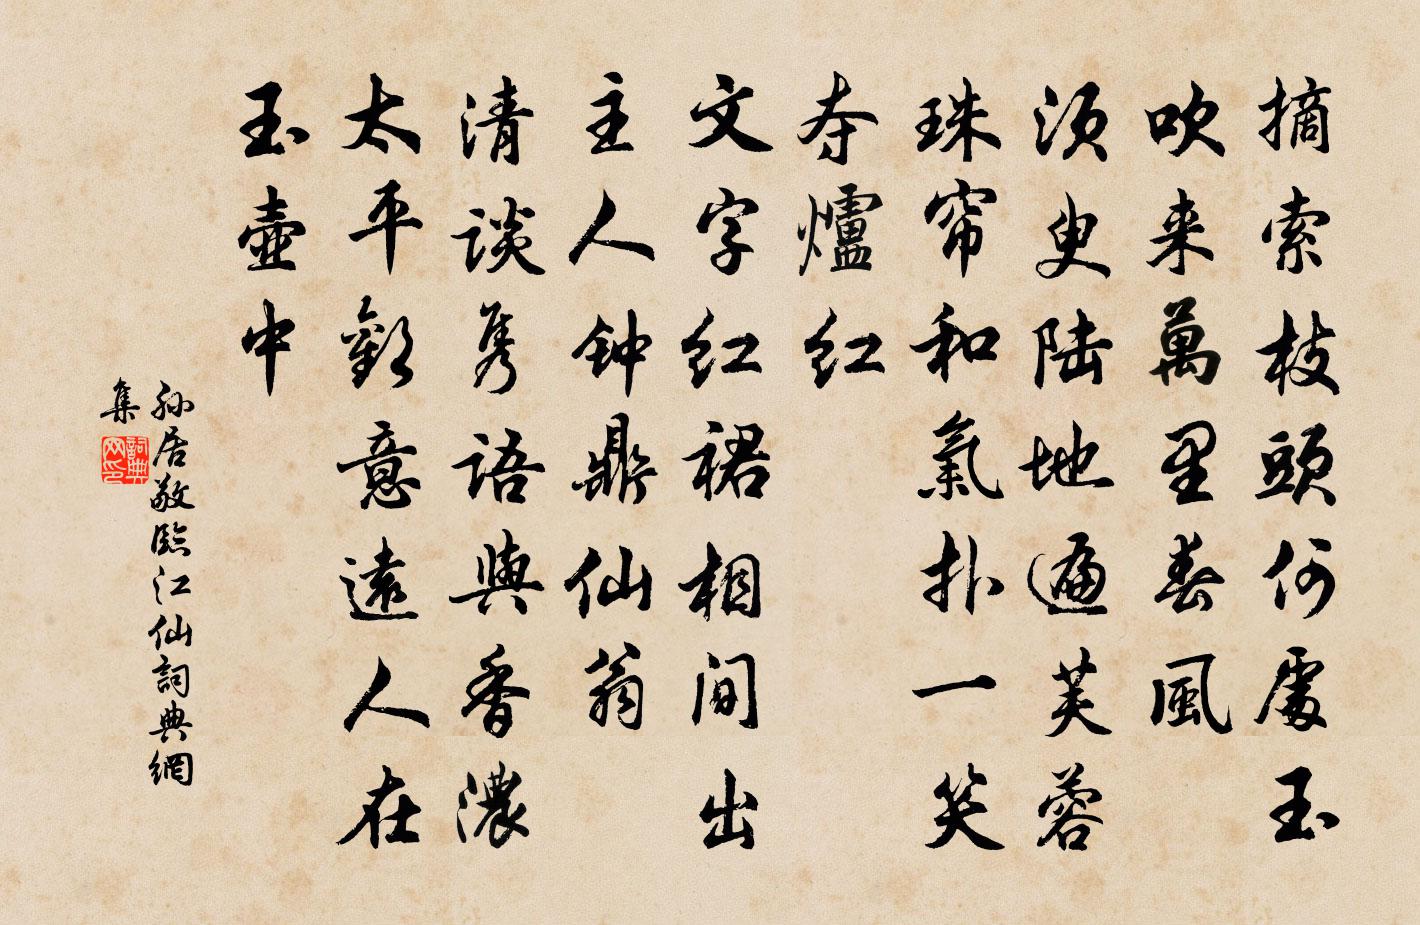 摘索枝頭何處玉
吹来萬里春風
須臾陆地遍芙蓉
珠帘和氣扑一笑
夺爐红
文字红裙相间出
主人钟鼎仙翁
清谈隽语與香濃
太平歡意遠人在
玉壺中
孙居敬臨江仙詞典網
集
詞典网印